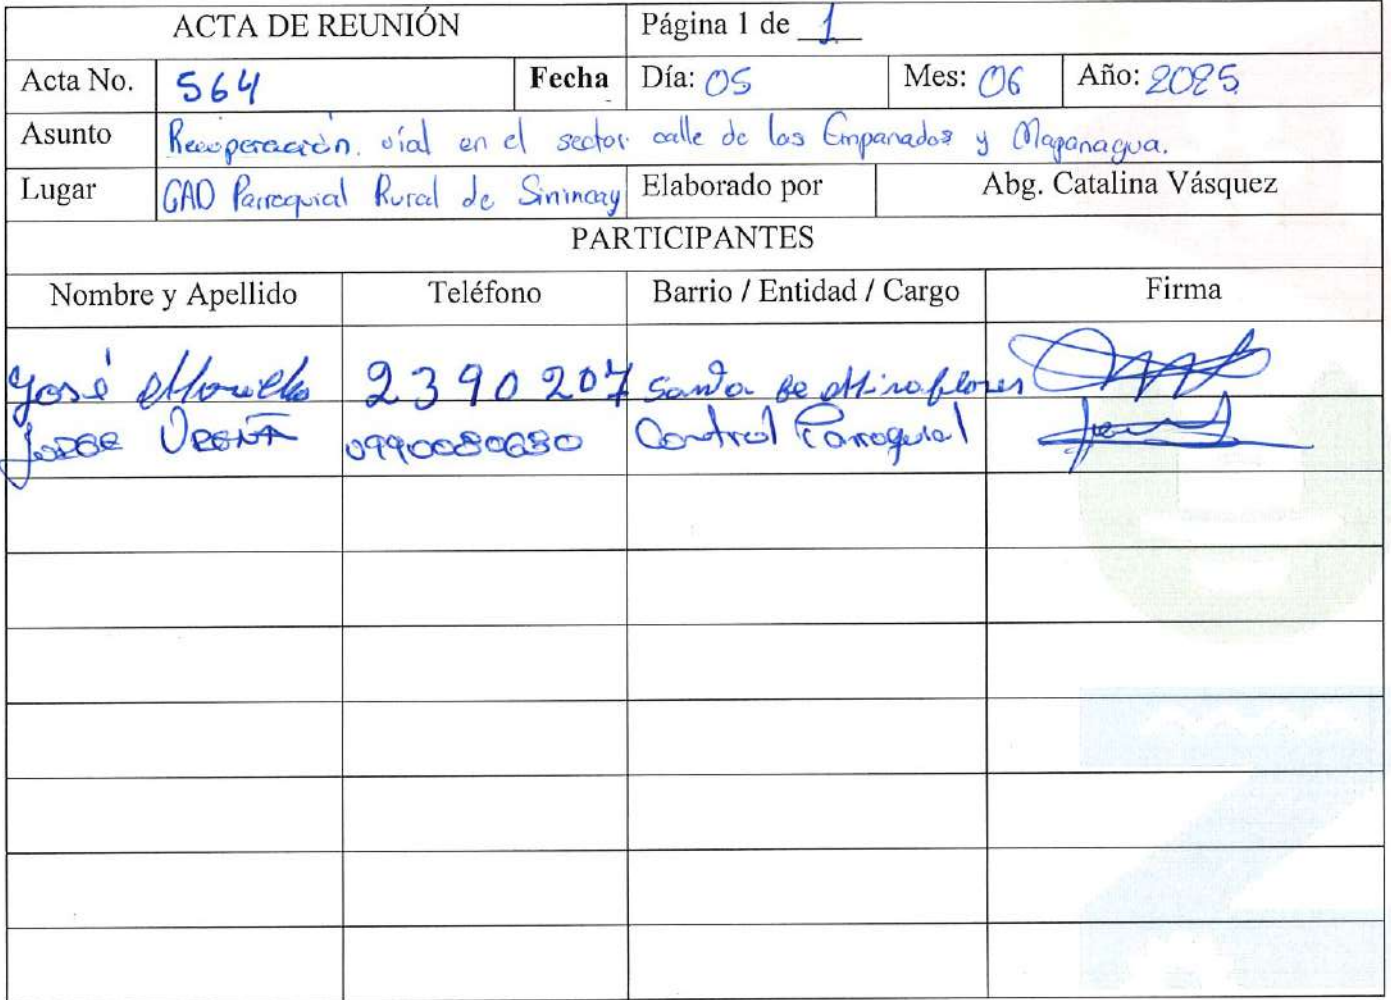 ACTA DE REUNIÓN Página 1 de 1
Acta No. 564 Fecha Día: 05 Mes: 06 Año: 2025
Asunto Recuperación. vial en el sector calle de las Empanadas y Mapanagua.
Lugar GAD Parroquial Rural de Sinincay Elaborado por Abg. Catalina Vásquez
PARTICIPANTES
Nombre y Apellido Teléfono Barrio / Entidad / Cargo Firma
José 2390207 de Miraflores
JORGE UREÑA 0990080680 Control Parroquial